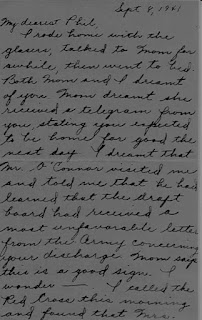 Sept 8, 1941
My dearest Phil,
I rode home with the
glasers, talked to Mom for
awhile, then went to bed.
Both Mom and I dreamt
of you. Mom dreamt she
received a telegram from
you, stating you expected
to be home for good the
next day. I dreamt that
Mr. O'Connor visited me
and told me that he had
learned that the draft
board had received a
most unfavorable letter
from the Army concerning
your discharge. Mom says
this is a good sign. I
wonder — I called the
Red Cross this morning
and found that Mrs.